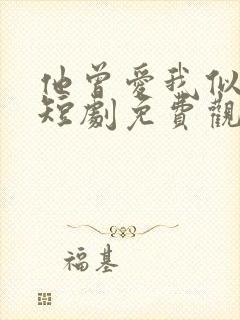 他曾愛我似
短劇免費觀
福基